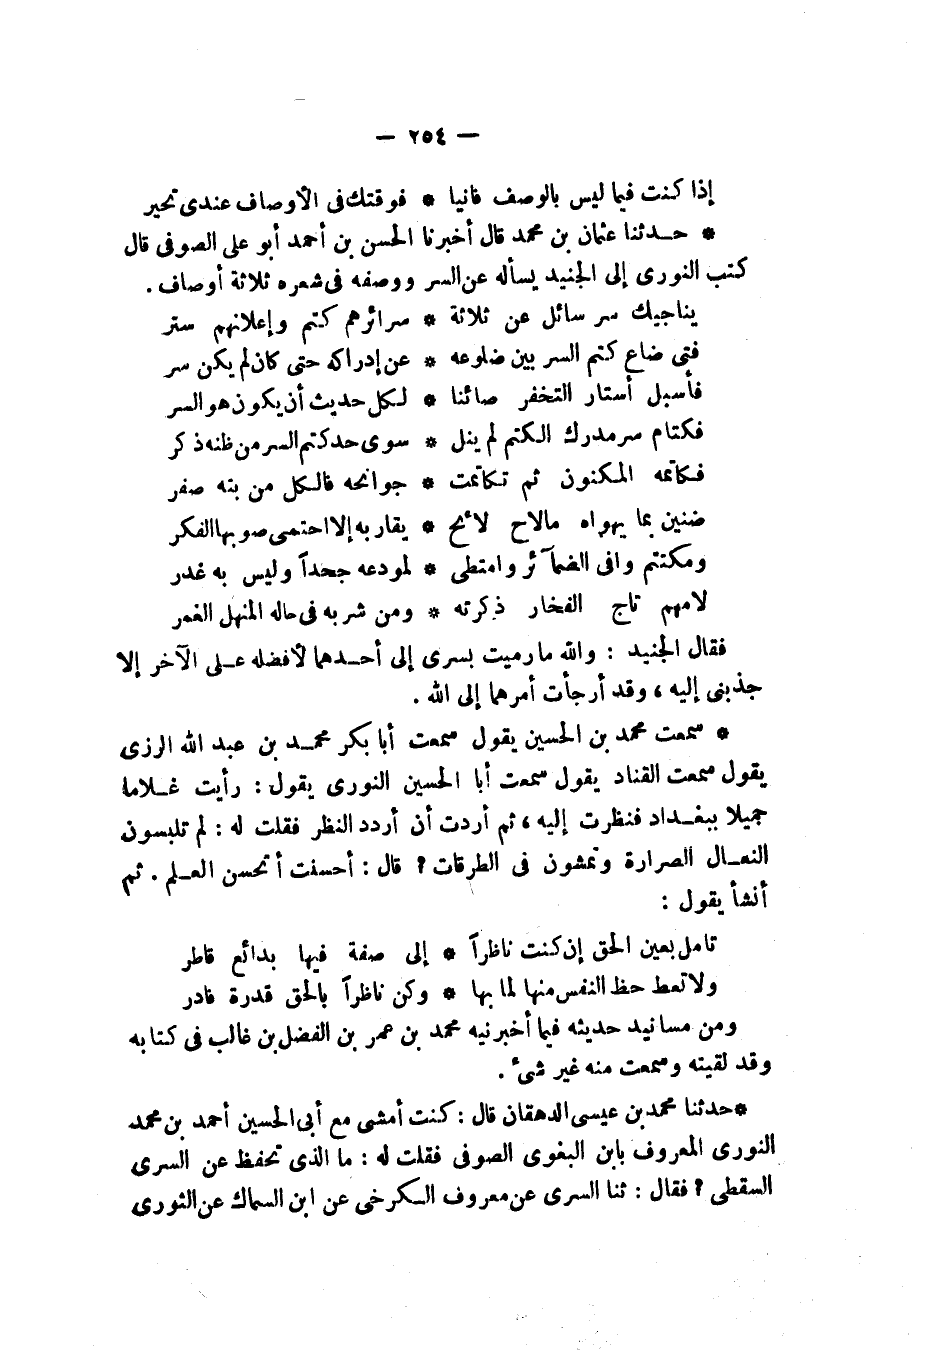 — ٢٥٤ —
إذا كنت فيما ليس بالوصف فانيا * فوقتك فى الأوصاف عندى تحير
* حـدثنا عثمان بن محمد قال أخبرنا الحسن بن أحمد أبو على الصوفى قال
كتب النورى إلى الجنيد يسأله عن السر ووصفه فى شعره ثلاثة أوصاف .
يناجيك سر سائل عن ثلاثة * سرائرهم كتم وإعلانهم ستر
فتى ضاع كتم السر بين ضلوعه * عن إدراكه حتى كان لم يكن سر
فأسبل أستار التخفر صائنا * لكل حديث أن يكون هو السر
فكتام سر مدرك الكتم لم ينل * سوى حد كتم السر من ظنه ذكر
فكاتمه المكنون ثم تكاتمت * جوانحه فالكل من بته صفر
ضنين بما يهواه مالاح لائح * يقاربه إلا احتمى صوبها الفكر
ومكتتم وافى الضمآئر وامتطى * لمودعه جحداً وليس به غدر
لامهم تاج الفخار ذكرته * ومن شربه فى حاله المنهل الغمر
فقال الجنيد : والله مارميت بسرى إلى أحـدهما لأفضله عـلى الآخر إلا
جذبنى إليه ، وقد أرجأت أمرهما إلى الله .
* سمعت محمد بن الحسين يقول سمعت أبا بكر محمـد بن عبد الله الرزى
يقول سمعت القناد يقول سمعت أبا الحسين النورى يقول : رأيت غـلاما
جميلا ببغـداد فنظرت إليه ، ثم أردت أن أردد النظر فقلت له : لم تلبسون
النعـال الصرارة وتمشون فى الطرقات ؟ قال : أحسنت أتحسن العـلم . ثم
أنشأ يقول :
تأمل بعين الحق إن كنت ناظراً * إلى صفة فيها بدائع فاطر
ولا تعط حظ النفس منها لما بها * وكن ناظراً بالحق قدرة قادر
ومن مسانيد حديثه فيما أخبرنيه محمد بن عمر بن الفضل بن غالب فى كتابه
وقد لقيته وسمعت منه غير شىء .
* حدثنا محمد بن عيسى الدهقان قال : كنت أمشى مع أبى الحسين أحمد بن محمد
النورى المعروف بابن البغوى الصوفى فقلت له : ما الذى تحفظ عن السرى
السقطى ؟ فقال : ثنا السرى عن معروف الكرخى عن ابن السماك عن الثورى